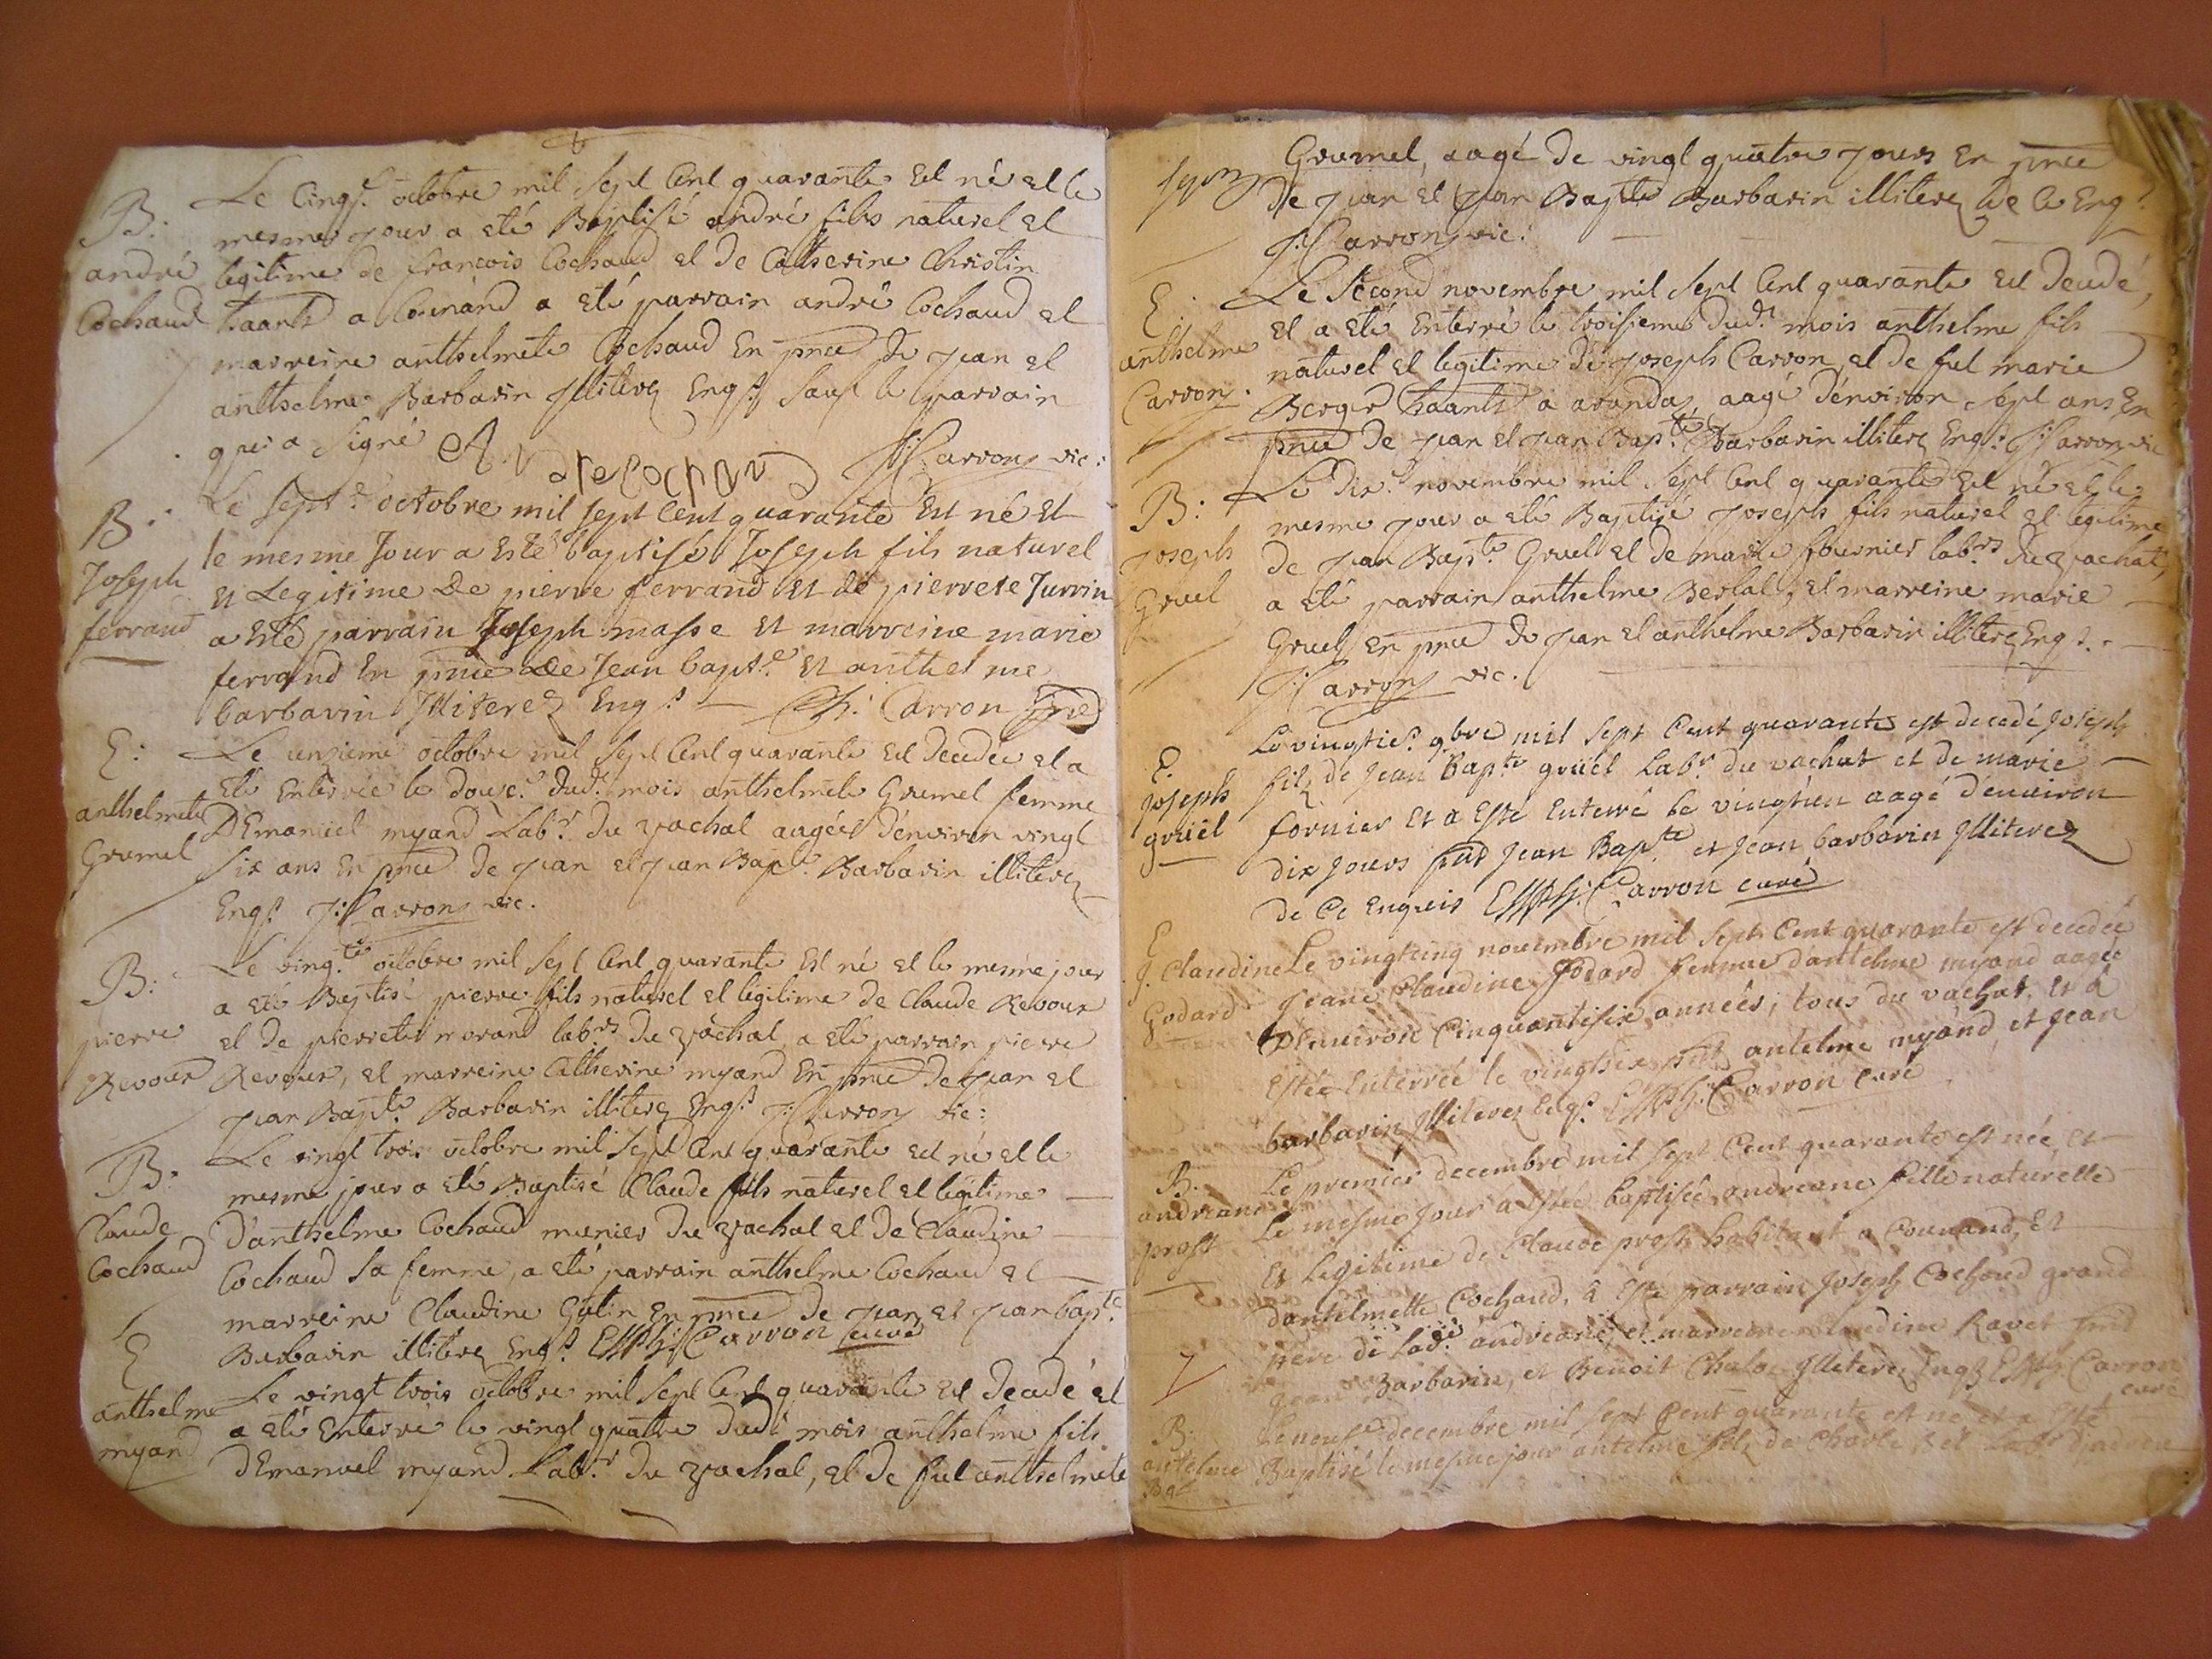 Le Cinq.e octobre mil sept Cent quarante Est né et le
B: mesme jour a eté Baptisé andré fils naturel et
andré legitime de francois Cochaud et de Catherine Christin
Cochaud haants a Counand a eté parrain andré Cochaud et
marreine anthelmete Cochaud En pnce de jean et
anthelme Barbarin Illiterez Enq.s sauf le parrain
qui a signé Andre Cochaud J: Carron vic:
Le sept.e octobre mil sept Cent quarante Est né et
B: le mesme Jour a Esté baptisé Joseph fils naturel
Joseph et Legitime de pierre ferrand et de pierrete Juvrin
ferrand a Esté parrain Joseph masse et marreine marie
ferrand En pnce de Jean bapt.e et anthelme
barbarin Illiterez Enq.s Ph: Carron
E: Le unzieme octobre mil sept Cent quarante Est decedee et a
eté Enterrée le douze.e dud.t mois anthelmete Grumel femme
anthelmete DEmanüel myand Lab.r du vachat aagée d'environ vingt
Grumel six ans En pnce de jean et jean Bap.te Barbarin illiterez
Enq.s J: Carron vic.
B: Le ving.te octobre mil sept Cent quarante Est né et le mesme jour
a eté Baptisé pierre fils naturel et legitime de Claude Revoux
pierre et de pierrete morand lab.rs du vachat, a eté parrain pierre
Revoux Revoux, et marreine Catherine myand En pnce de jean et
jean Bapt.e Barbarin illiterez Enq.s J: Carron vic:
B: Le vingt trois octobre mil sept Cent quarante est né et le
mesme jour a eté Baptisé Claude fils naturel et legitime
Claude d'anthelme Cochaud munier du vachat et de Claudine
Cochaud Cochaud sa femme, a eté parrain anthelme Cochaud et
marreine Claudine Gutin En pnce de jean et jean bap.te
Barbarin illiterez Enq.s Ph: Carron curé
E
anthelme Le vingt trois octobre mil sept Cent quarante est decedé et
myand a eté Enterré le vingt quattre dud.t mois anthelme fils
dEmanuel myand Lab.r du vachat, et de fut anthelmete
Grumel, aagé de vingt quatre jours En pnce
de jean et jean Bapte Barbarin illiterez de ce Enq.s
J: Carron vic:
E: Le second novembre mil sept Cent quarante Est decedé,
anthelme et a eté Enterré le troisieme dud.t mois anthelme fils
Carron. naturel et legitime de joseph Carron, et de fut marie
Berger haants a aranda, aagé d'environ sept ans En
pnce de jean et jean Bap.te Barbarin illiterez Enq.s J: Carron vic
B: Le Dix.e novembre mil sept Cent quarante Est né et le
mesme jour a eté Baptizé joseph fils naturel et legitime
joseph de jean Bap.te Gruel et de marie fournier lab.rs du vachat,
Gruel a eté parrain anthelme Bertal, et marreine marie
Gruel, En pnce de jean et anthelme Barbarin illiterez Enq.s
J: Carron vic.
Le vingtie.e 9bre mil sept Cent quarante est decedé joseph
E. filz de Jean Bapte grüel Lab.r du vachat et de marie
joseph fornier et a Esté Enterré le vingtun aagé d'environ
grüel dix jours pnts Jean Bap.te et Jean barbarin Illiterez
de Ce Enquis Ph: Carron curé
E
J. Claudine Le vingtcinq novembre mil sept Cent quarante est decedée
Godard Jeane Claudine Godard femme d'antelme myand aagée
D'environ Cinquantesix années, tous du vachat, et a
Estée Enterrée le vingtsix pnts antelme myand, et Jean
barbarin Illiterez Enq.s Ph: Carron curé
B. Le premier decembre mil sept Cent quarante est née, et
andreane Le mesme jour a Estée baptisée, andreane fille naturelle
prost Et Legitime de Claude prost habitant a Counand, Et
dantelmette Cochand, a Esté parrain joseph Cochoud grand
pere de lad.e andreane, et marreine Claudine Ravet pnts
Jean Barbarin, et Benoit Illiterez Enqs Ph: Carron
curé
B. Le neuf.e decembre mil sept Cent quarante est né et a Esté
antelme Baptisé le mesme jour antelme filz de Charle